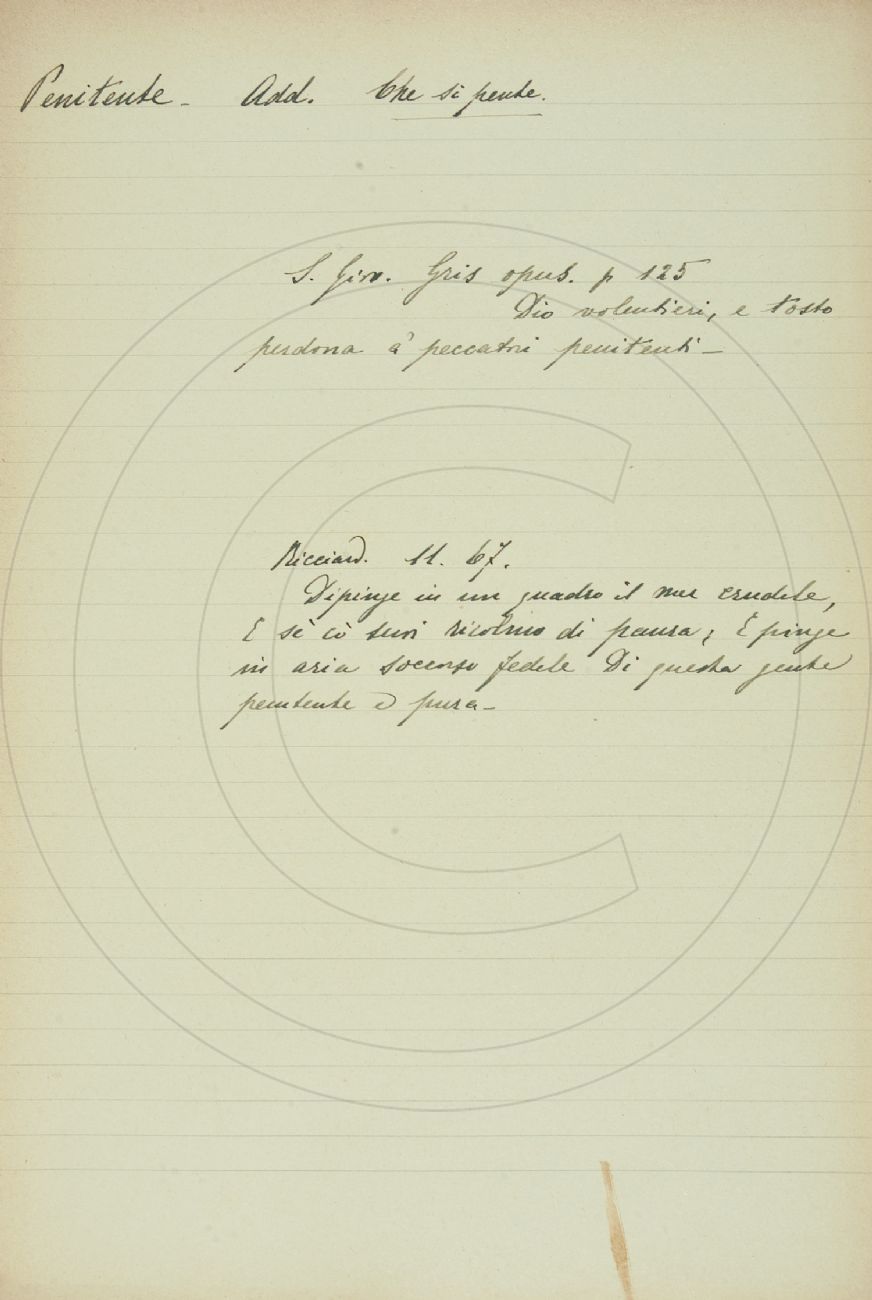 Penitente - Add. Che si pente.
S. Giov. Gris opus. p 125
Dio volentieri, e tosto
perdona a' peccatori penitenti -
Ricciard. 11. 67.
Dipinge in un quadro il mar crudele,
E sè co' suoi ricolmo di paura; E pinge
in aria soccorso fedele Di questa gente
penitente e pura -